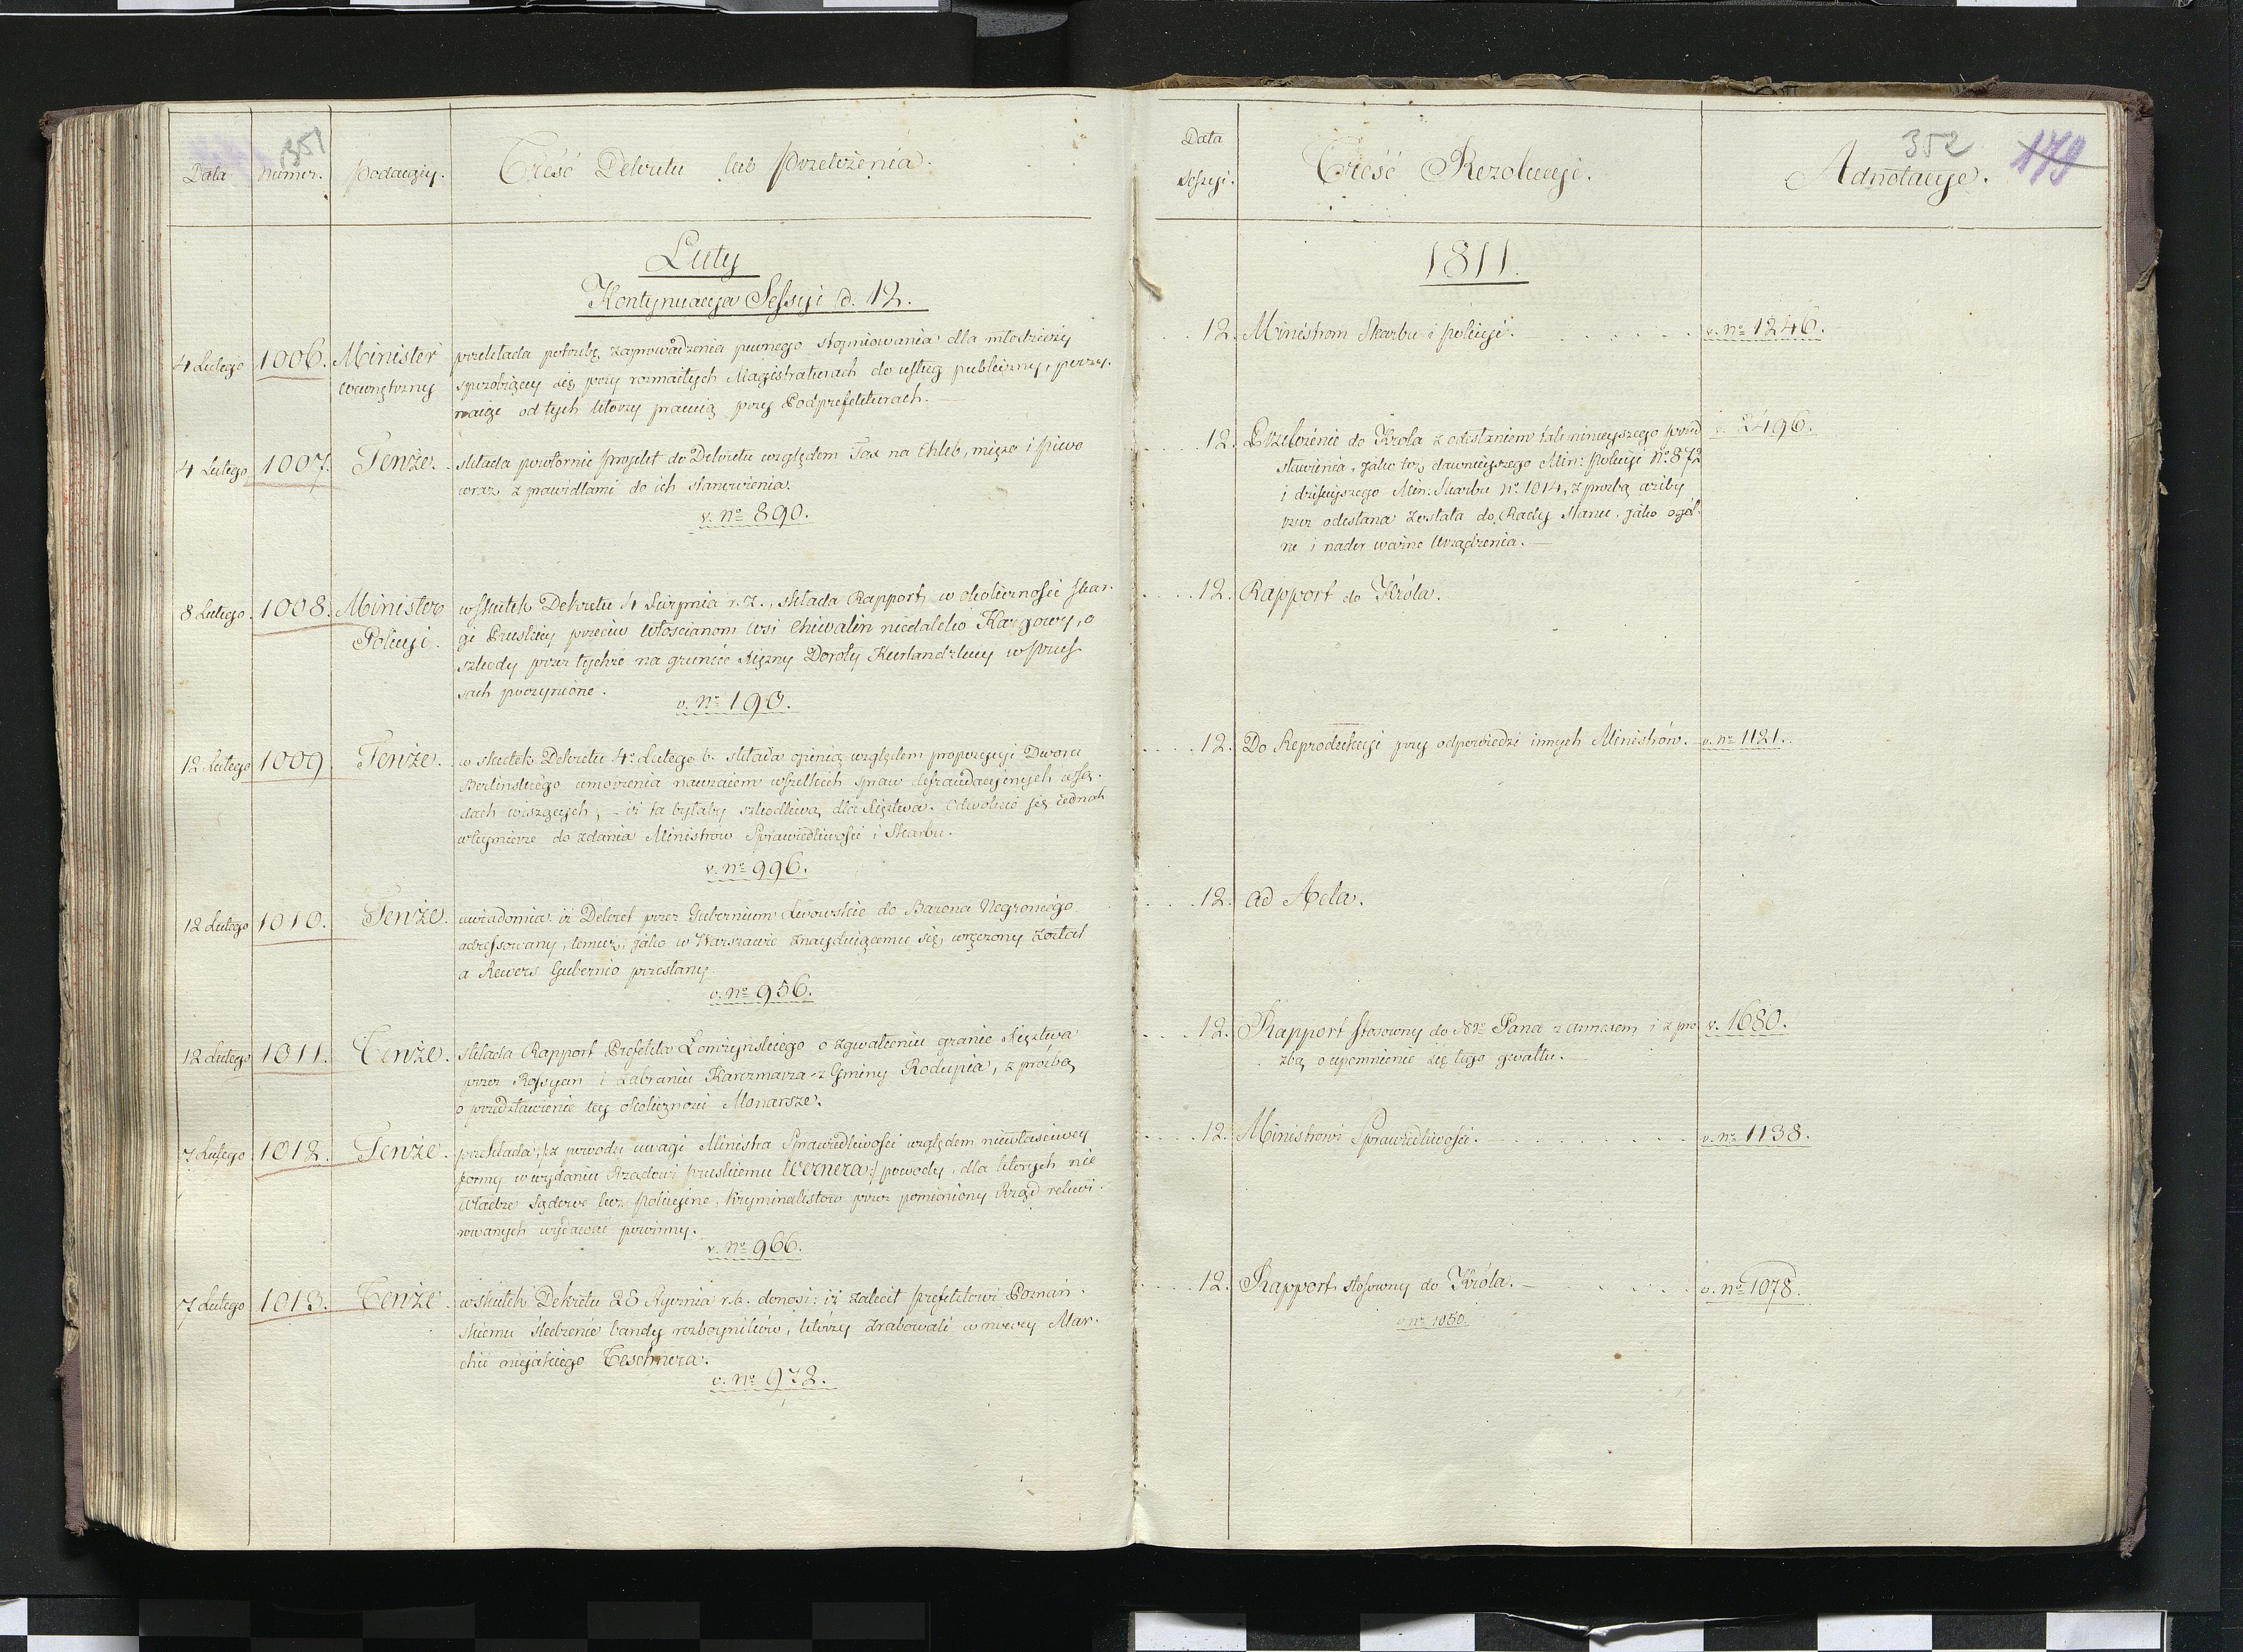 351
Data
Numer.
Podaiący.
Treść Dekretu lub Przełożenia.
Luty
Kontynuacya Sessyi d. 12.
4 Lutego
1006.
Minister
wewnętrzny
przekłada potrzebę zaprowadzenia pewnego stopniowania dla młodzieży
sposobiącey się przy rozmaitych Magistraturach do usług publiczny, poczy-
naiąc od tych którzy pracuią przy Podprefekturach.
4 Lutego
1007.
Tenże.
składa powtornie projekt do Dekretu względem Tax na Chleb, mięso i piwo
wraz z prawidłami do ich stanowienia.
v. No 890.
8 Lutego.
1008.
Minister
Policyi.
wskutek Dekretu 4 Sierpnia r. z., składa Rapport w okoliczności skar-
gi Pruskiey przeciw Włościanom wsi Chwalin niedaleko Kargowy, o
szkody przez tychże na gruncie Xiężny Doroty Kurlandzkiey w Prus-
sach poczynione.
v. No 190.
12 Lutego
1009
Tenże.
w skutek Dekretu 4o Lutego b. składa opinią względem propozycyi Dworu
Berlińskiego umorzenia nawzaiem wszelkich spraw defraudacyinych w Są-
dach wiszących, - iż ta byłaby szkodliwą dla Xięstwa. Odwołuie się iednak
w tey mierze do zdania Ministrow Sprawiedliwości i Skarbu.
v. No 996.
12 Lutego
1010.
Tenże.
uwiadomia iż Dekret przez Gubernium Lwowskie do Barona Negroniego
adressowany, temuż, jako w Warszawie znayduiącemu się, wręczony został
a Rewers Gubernio przesłany.
v. No 956.
12 Lutego
1011.
Tenże.
składa Rapport Prefekta Łomżyńskiego o zgwałceniu granic Xięztwa
przez Rossyan i zabraniu Karczmarza z Gminy Rodupia, z prośbą
o przedstawienie tey okoliczności Monarsze.
7 Lutego
1012.
Tenże.
przekłada, /z powodu uwagi Ministra Sprawiedliwości względem niewłaściwey
formy w wydaniu Rządowi pruskiemu Wernera:/ powody, dla których nie
Władze Sądowe lecz Policyine, kryminalistow przez pomieniony Rząd rekwi-
rowanych wydawać powinny.
v. No 966.
7 Lutego
1013.
Tenże
wskutek Dekretu 28 Stycznia r. b. donosi: iż zalecił Prefektowi Poznań-
skiemu śledzenie bandy rozboynikow, którzy zrabowali w nowey Mar-
chii niejakiego Teschnera.
v. No 978.
Data
Sessyi.
Treść Rezolucyi.
352
179
Adnotacye.
1811.
12.
Ministrom Skarbu i Policyi.
v. No 1246.
12.
Przełożenie do Krola z odesłaniem tak ninieyszego przed
stawienia, jako też dawnieyszego Min: Policyi No 872
i dzisieyszego Min: Skarbu No 1014, z prozbą ażeby
rzecz odesłana została do Rady Stanu, jako ogól-
ne i nader ważne Urządzenia.
v. 2496.
12.
Rapport do Króla.
12.
Do Reprodukcyi przy odpowiedzi innych Ministrów.
v. No 1121.
12.
ad Acta.
12.
Rapport stosowny do Ngo Pana z annexem i z pro
zbą o upomnienie się tego gwałtu.
v. 1680.
12.
Ministrowi Sprawiedliwości.
v. No 1138.
12.
Rapport stosowny do Króla.
v. No 1050.
v. No 1078.